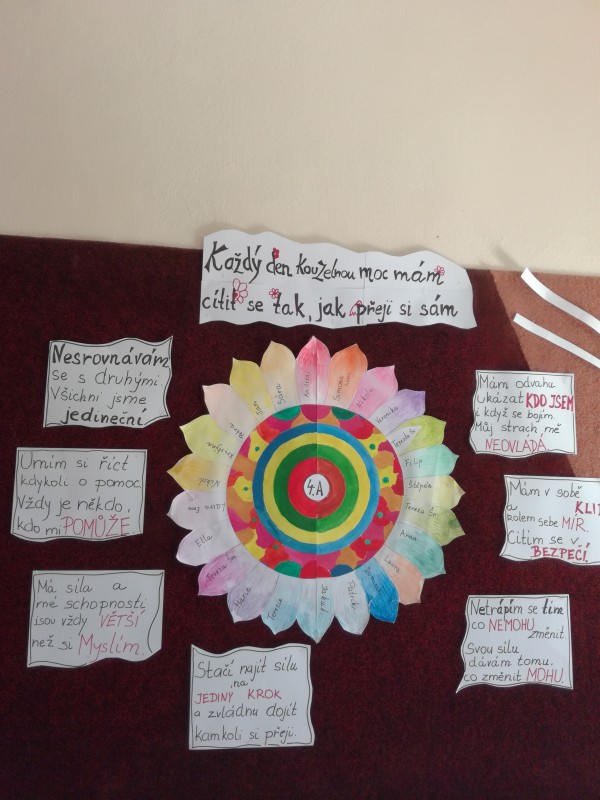 Každý den kouzelnou moc mám
cítit se tak, jak přeji si sám
Nesrovnávám
se s druhými.
Všichni jsme
jedineční.
Umím si říct
kdykoli o pomoc.
Vždy je někdo,
kdo mi POMŮŽE.
Má síla a
mé schopnosti
jsou vždy VĚTŠÍ
než si Myslím.
Stačí najít sílu
na
JEDINÝ KROK
a zvládnu dojít
kamkoli si přeji.
Mám odvahu
Ukázat KDO JSEM
i když se bojím.
Můj strach mě
NEOVLÁDÁ.
Mám v sobě
KLID
a
kolem sebe MÍR.
Cítím se v
BEZPEČÍ.
Netrápím se tím
co NEMOHU
změnit
Svou sílu
dávám tomu,
co změnit MOHU.
4.A
Simona
Nikola
Veronika
Tereza Š.
Filip
Štěpán
Anna
Laura
Patrik
Jakub
Tereza
Marie
Ella
Sára